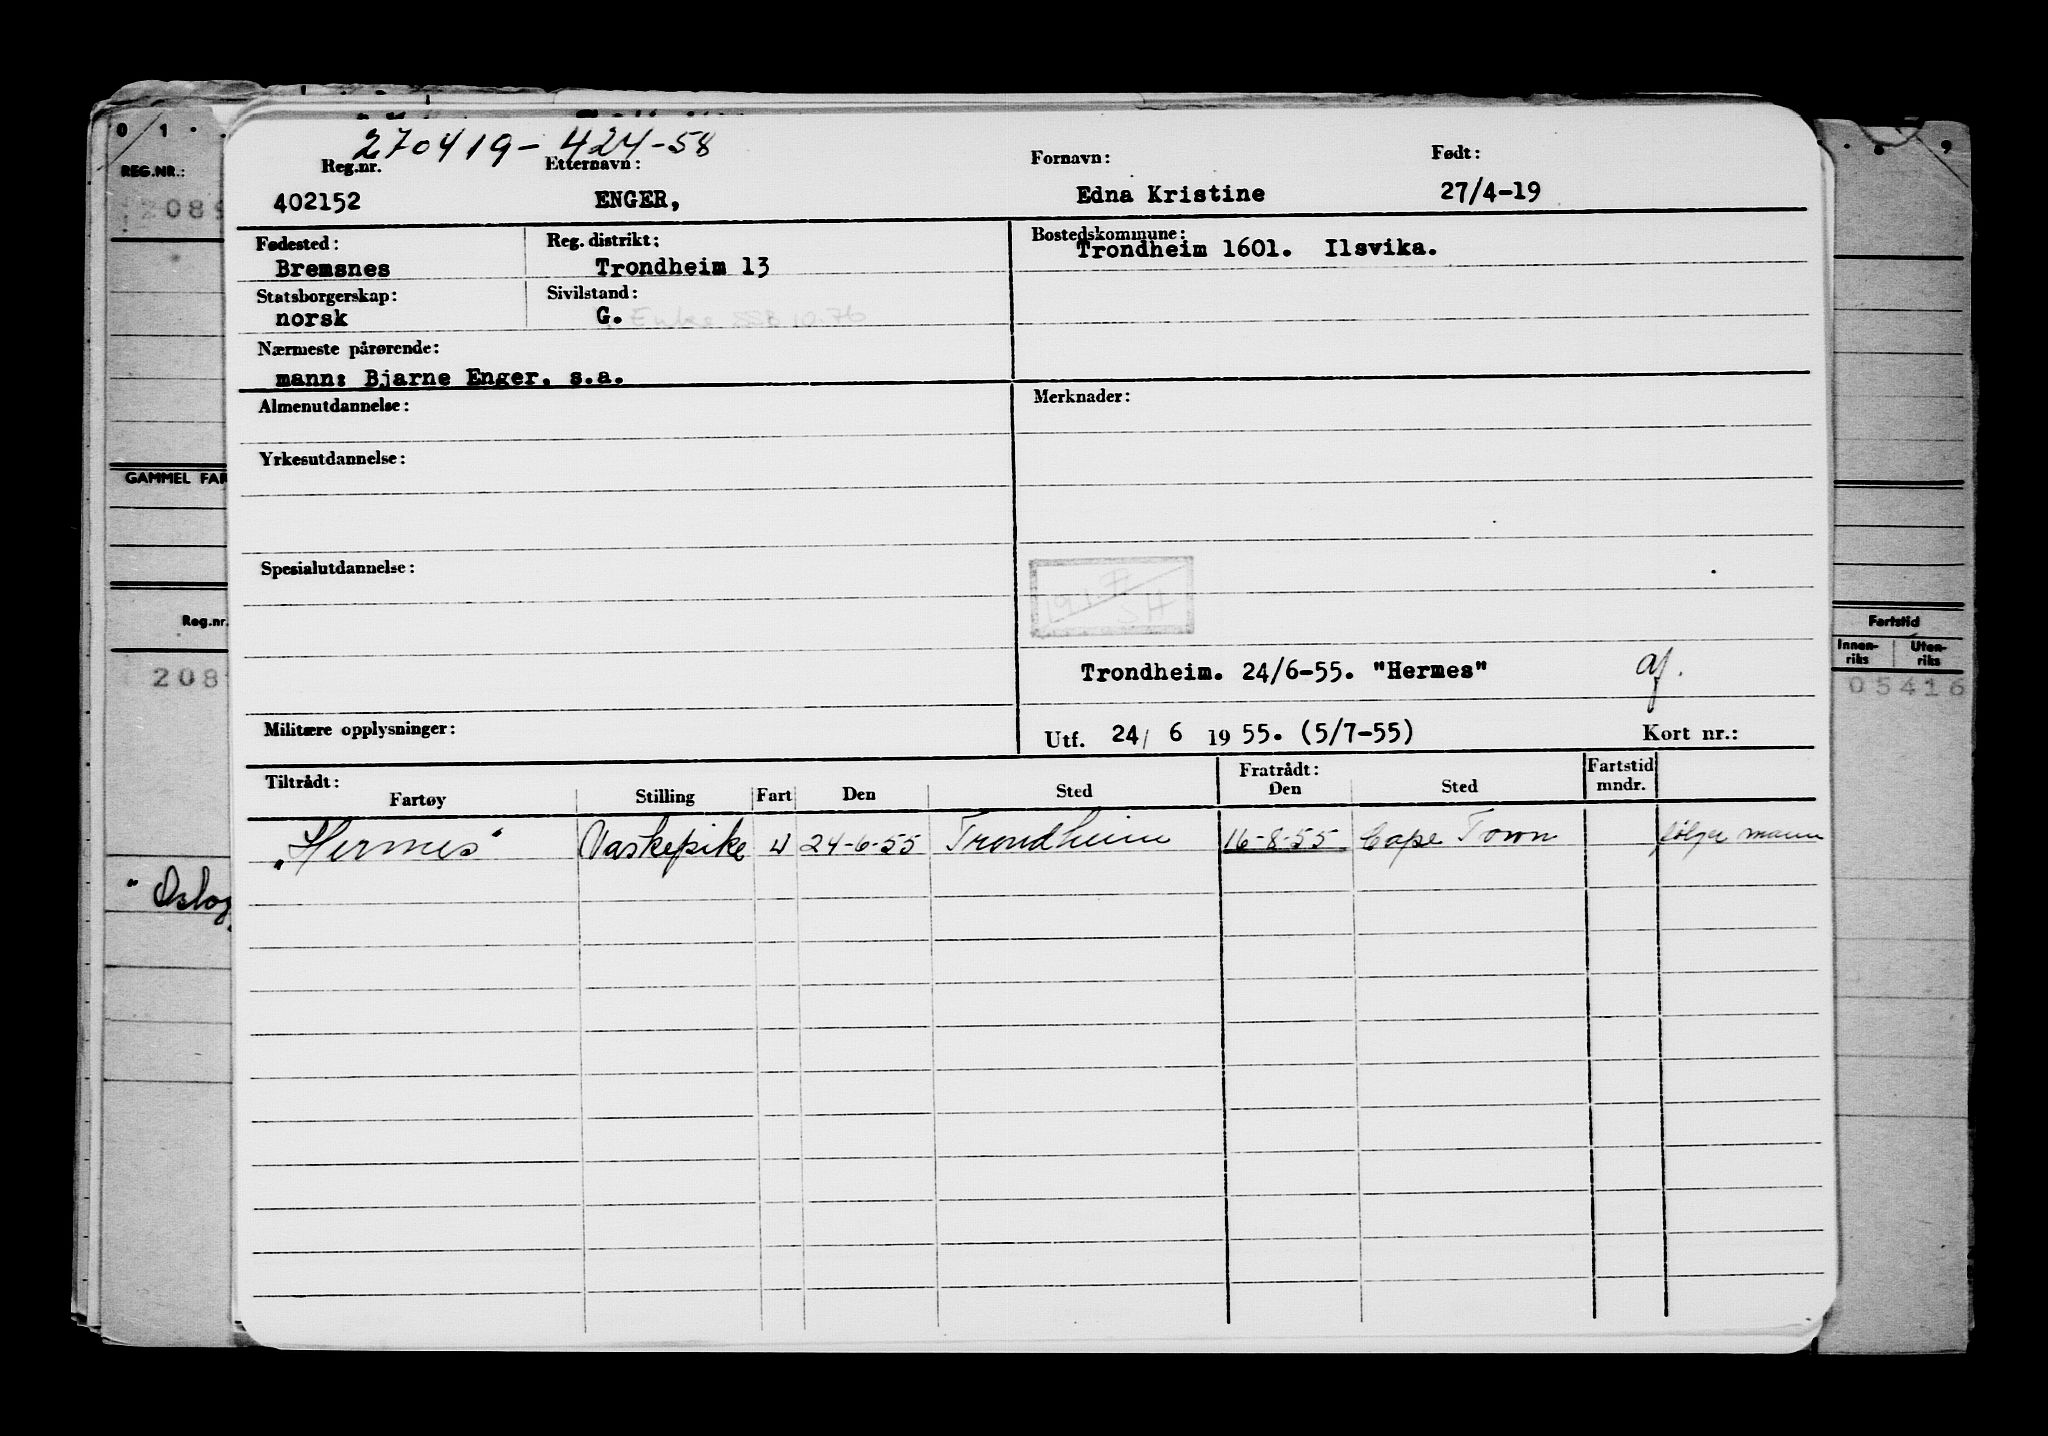 0 1
REG.NR.:
GAMMEL FAR
Reg.nr.
208
" Oslo
9
Fartstid
Innen-riks Uten-riks
05416
270419-42458
Reg.nr. Etternavn: Fornavn: Født:
402152 ENGER, Edna Kristine 27/4-19
Fødested: Reg. distrikt: Bostedskommune:
Bremsnes Trondheim 13 Trondheim 1601. Ilsvika.
Statsborgerskap: Sivilstand:
norsk G. Enke SSB 10.76
Nærmeste pårørende:
mann: Bjarne Enger, s.a.
Almenutdannelse: Merknader:
Yrkesutdannelse:
Spesialutdannelse:
Trondheim. 24/6-55. "Hermes" af.
Militære opplysninger: Utf. 24/ 6 1955. (5/7-55) Kort nr.:
Tiltrådt: Fratrådt: Fartstid mndr.
Fartøy Stilling Fart Den Sted Den Sted
"Hermes" Vaskepike U 24-6-55 Trondheim 16-8-55 Cape Town følger mann